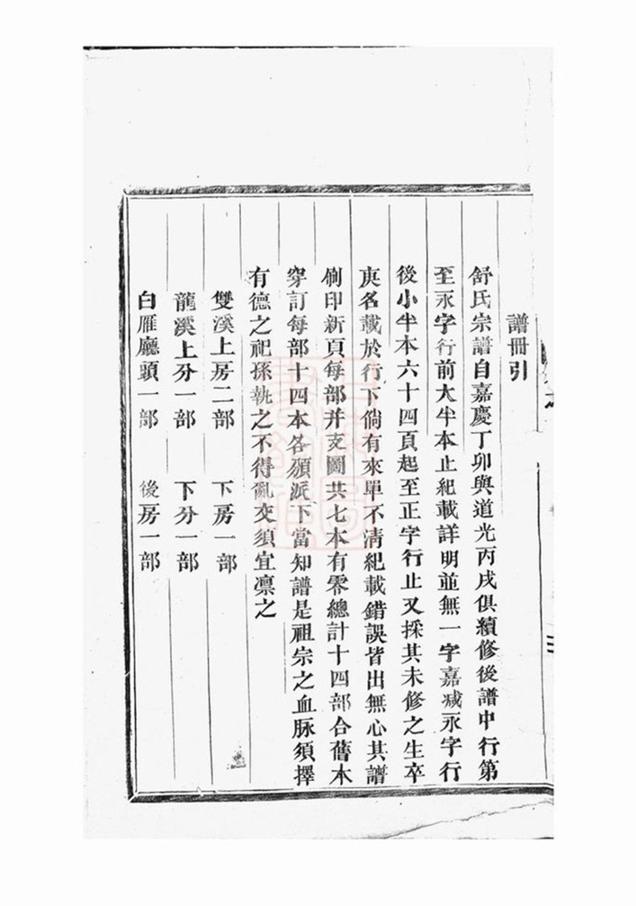 譜冊引
舒氏宗譜自嘉慶丁卯與道光丙戌俱續修後譜中行第
至永字行前大半本止紀載詳明並無一字嘉减永字行
後小半本六十四頁起至正字行止又採其未修之生卒
庚名載於行下倘有來單不清紀載錯誤皆出無心其譜
刷印新頁每部并支圖共七本有零總計十四部合舊本
穿訂每部十四本各願派下當知譜是祖宗之血脉須擇
有德之祀孫執之不得亂交須宜凛之
雙溪上房二部 下房一部
龍溪上分一部 下分一部
白雁廳頭一部 後房一部